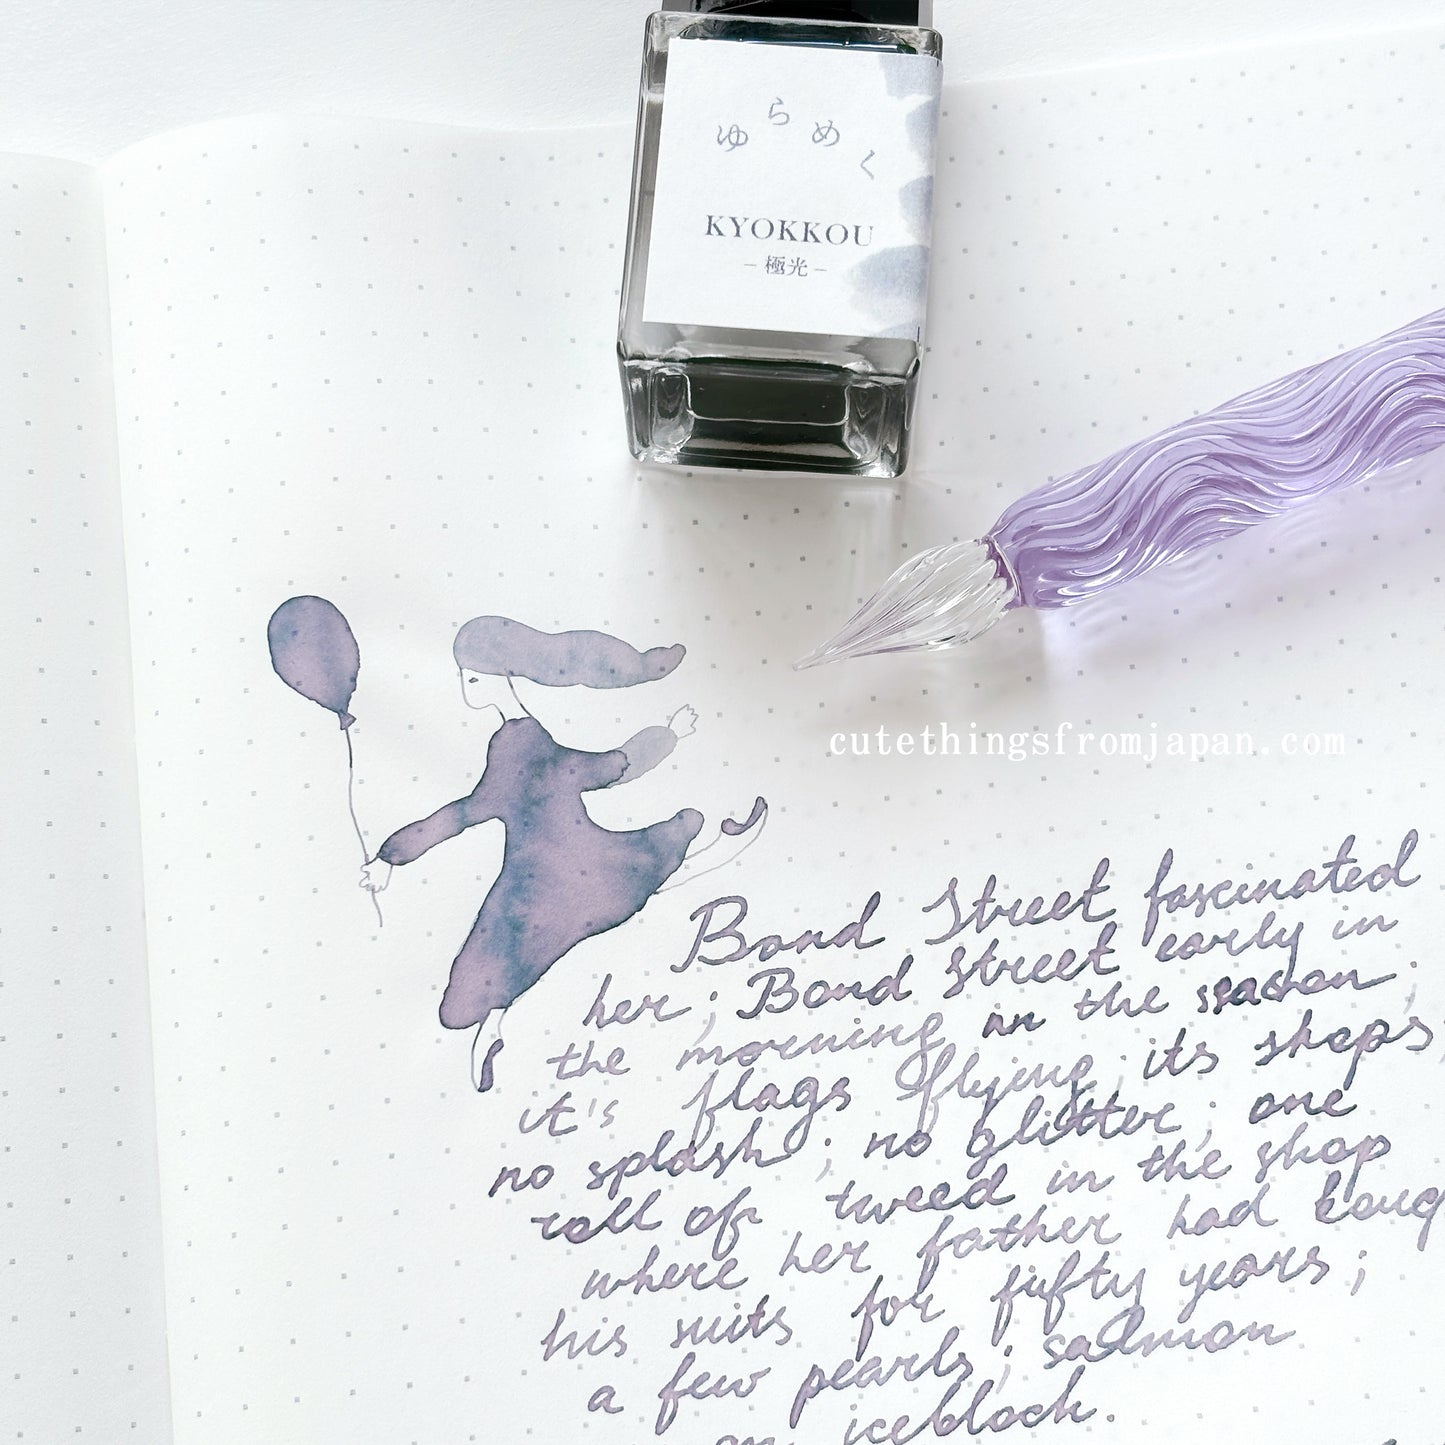 ゆらめく
KYOKKOU
-極光-
cutethingsfromjapan.com
Bond Street fascinated
her; Bond Street early in
the morning in the season;
it's flags flying; its shops;
no splash; no glitter; one
roll of tweed in the shop
where her father had boug
his suits for fifty years;
a few pearls; salmon
on iceblock.